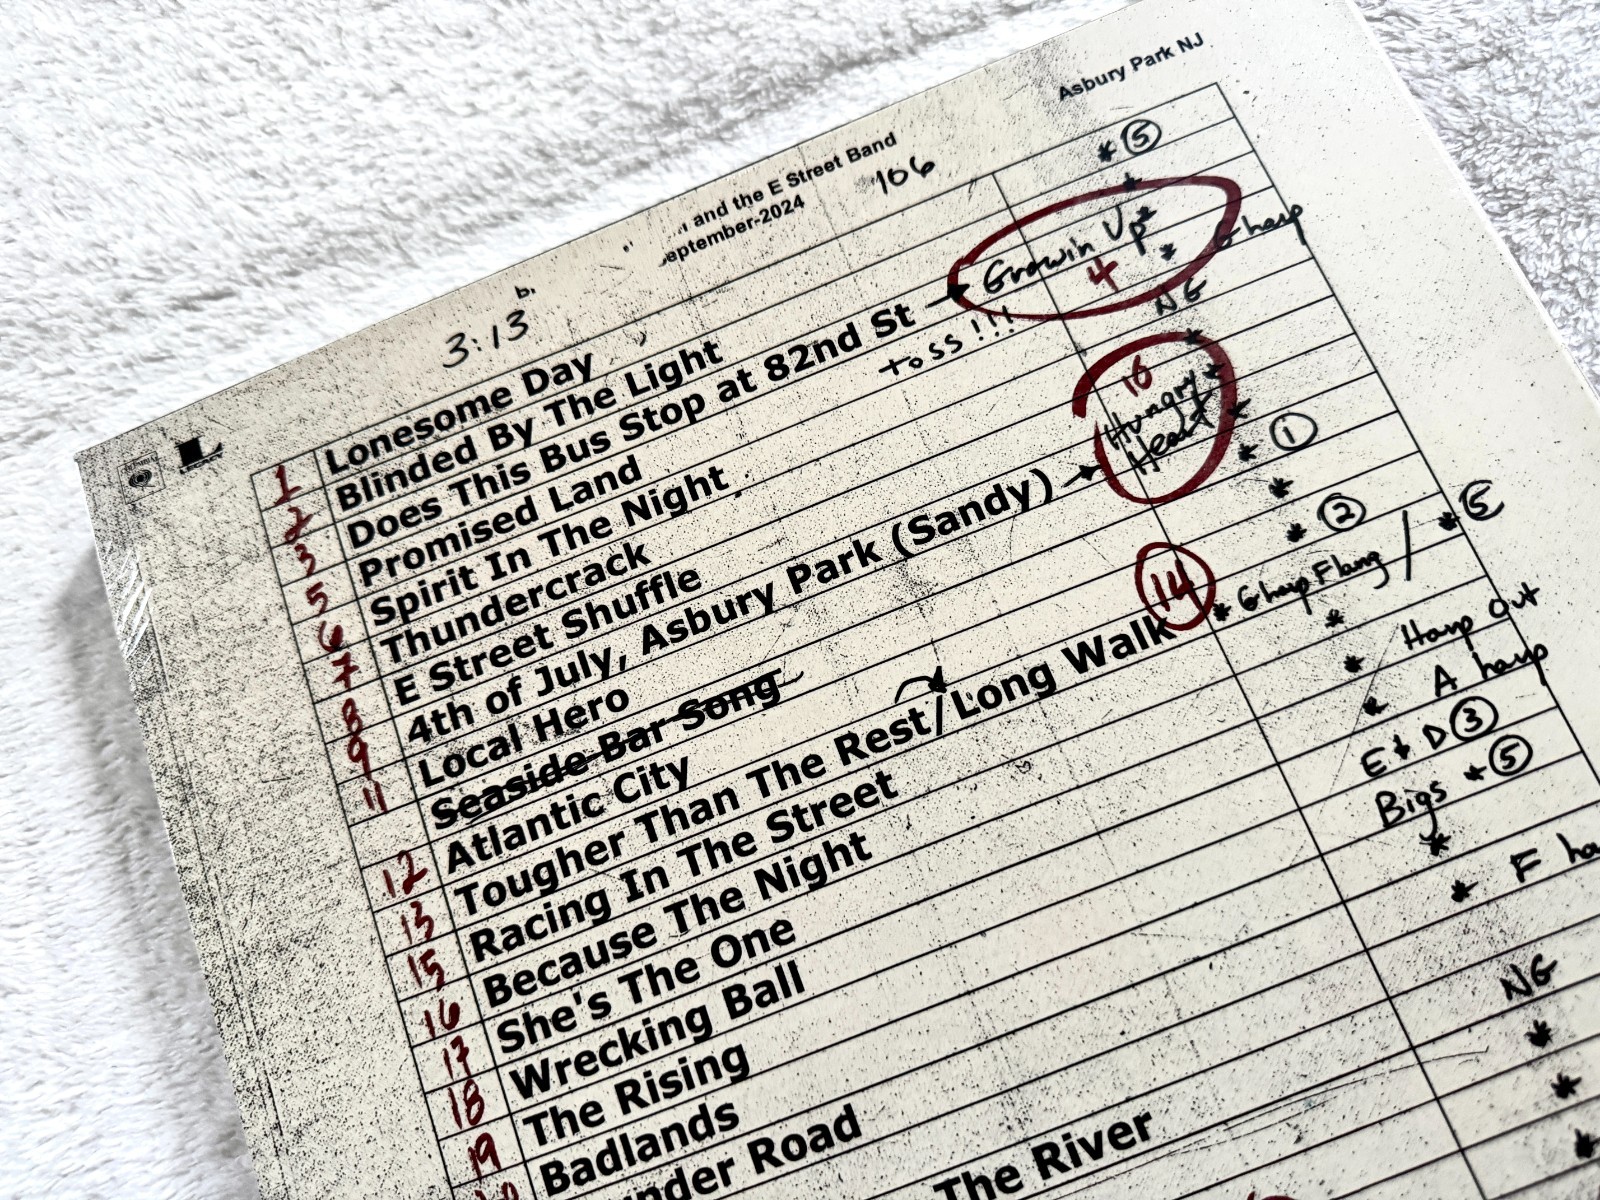 Asbury Park NJ
and the E Street Band
eptember-2024
106
3:13
1 Lonesome Day * 5
2 Blinded By The Light *
3 Does This Bus Stop at 82nd St → Growin Up * 4
toss!!!
5 Promised Land * G harp
6 Spirit In The Night NG
7 Thundercrack *
8 E Street Shuffle *
9 4th of July, Asbury Park (Sandy) → 10 Hungry Heart *
11 Local Hero * 1
Seaside Bar Song *
12 Atlantic City * 2
13 Tougher Than The Rest/Long Walk 14 * G harp Flang / * 5
15 Racing In The Street * Harp Out
16 Because The Night * A harp
17 She's The One * E & D 3
18 Wrecking Ball Bigs * 5
19 The Rising *
Badlands * F ha
nder Road
The River
NG